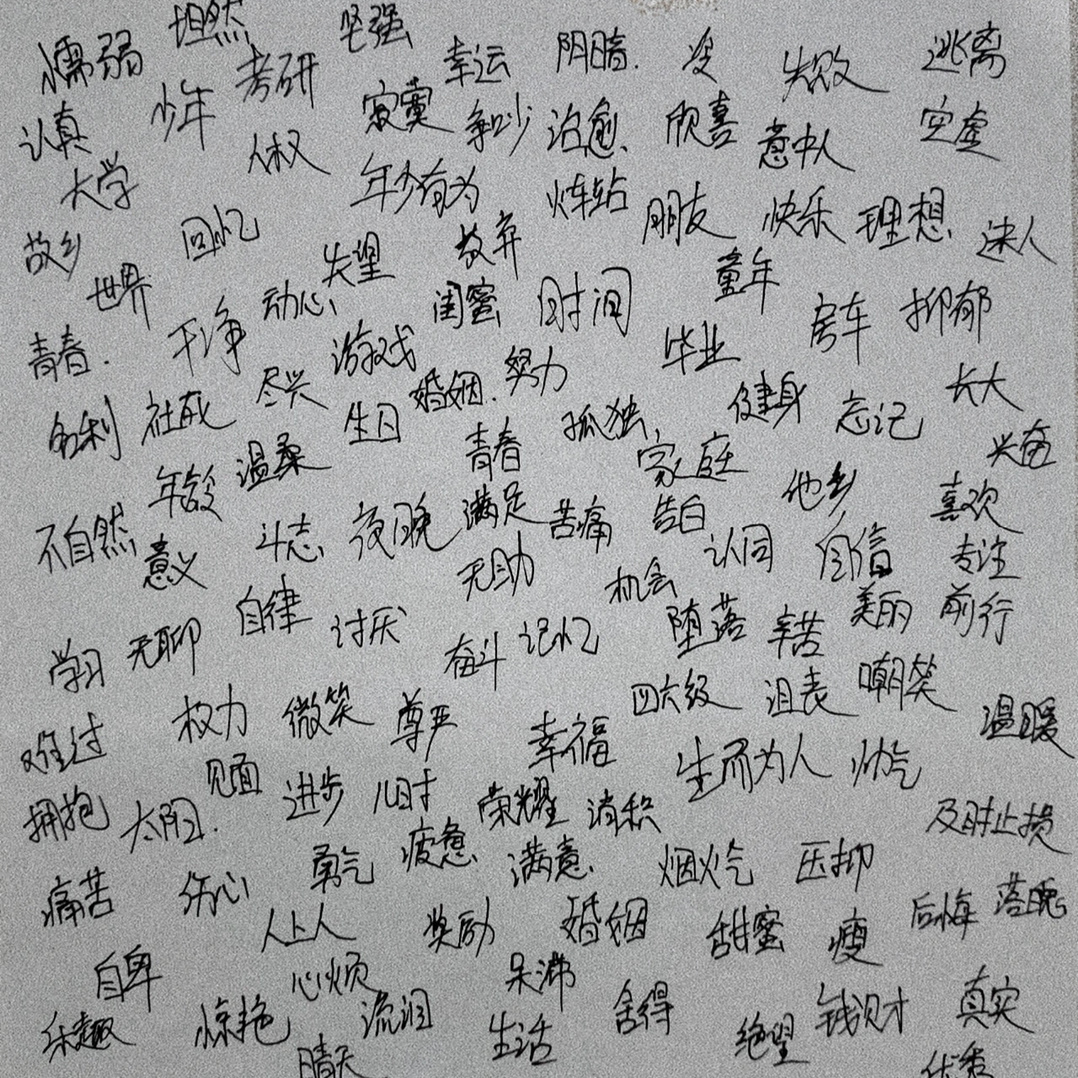 懦弱 坦然 坚强 幸运 阴暗. 没 失败 逃离
认真 少年 考研 寂寞 争吵 治愈 欣喜 意中人 空虚
大学 人权 年少有为 火车站 朋友 快乐 理想 迷人
故乡 回忆 失望 放弃 童年
世界 动心 闺蜜 时间 房车 抑郁
青春. 干净 游戏 毕业
名利 社死 尽兴 生日 婚姻. 努力 孤独 健身 忘记 长大
年龄 温柔 青春 家庭 他乡 兴奋
不自然 意义 斗志 夜晚 满足 苦痛 告白 认同 自信 喜欢 专注
无助 机会
学习 无聊 自律 讨厌 奋斗 记忆 堕落 辛苦 美丽 前行
难过 权力 微笑 尊严 幸福 四六级 沮丧 嘲笑 温暖
拥抱 太阳. 见面 进步 儿时 荣耀 消积 生而为人 帅气 及时止损
痛苦 伤心 勇气 疲惫 满意 烟火气 压抑
人上人 奖励 婚姻 甜蜜 瘦 后悔 落魄
自卑 心烦 呆滞
乐趣 惊艳 流泪 生活 舍得 绝望 钱财 真实
晴天 优秀